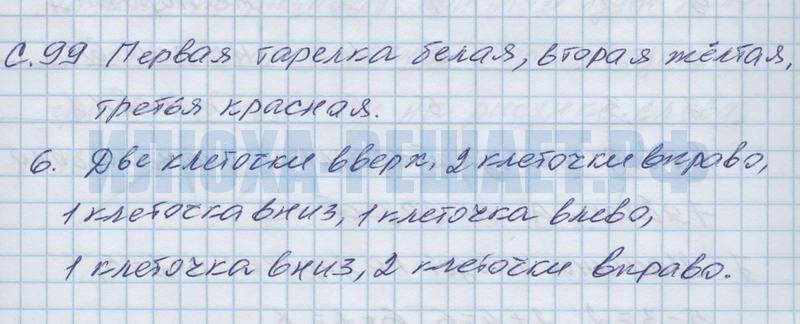 С.99 Первая тарелка белая, вторая жёлтая,
третья красная.
ИЛЮХА-РЕШАЕТ.РФ
6. Две клеточки вверх, 2 клеточки вправо,
1 клеточка вниз, 1 клеточка влево,
1 клеточка вниз, 2 клеточки вправо.